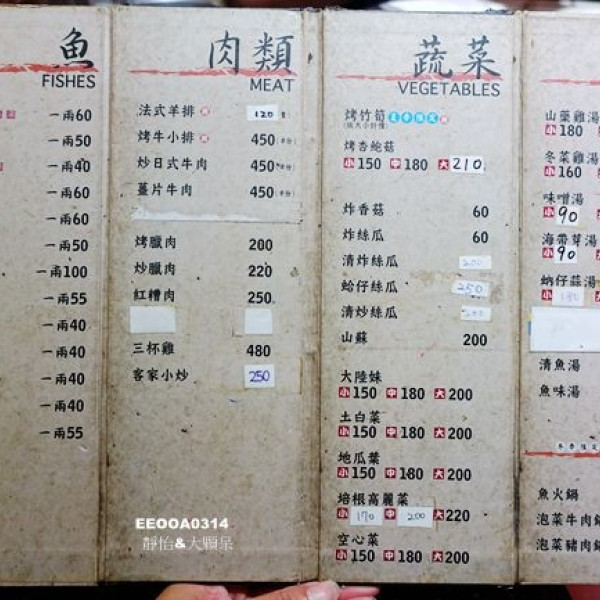 魚
FISHES
一兩60
一兩50
一兩40
一兩60
一兩60
一兩50
一兩100
一兩55
一兩40
一兩40
一兩40
一兩55
肉類
MEAT
法式羊排 120
烤牛小排 450
炒日式牛肉 450
薑片牛肉 450
烤臘肉 200
炒臘肉 220
紅糟肉 250
三杯雞 480
客家小炒 250
蔬菜
VEGETABLES
烤竹筍
烤杏鮑菇
小150 中180 大210
炸香菇 60
炸絲瓜 60
清炸絲瓜 200
蛤仔絲瓜 250
清炒絲瓜 200
山蘇 200
大陸妹
小150 中180 大200
土白菜
小150 中180 大200
地瓜葉
小150 中180 大200
培根高麗菜
小170 中200 大220
空心菜
小150 中180 大200
山藥雞湯
小180
冬菜雞湯
小160
味噌湯
小90
海帶芽湯
小90
蚋仔蒜湯
小180
清魚湯
魚味湯
魚火鍋
泡菜牛肉鍋
泡菜豬肉鍋
EEOOA0314
靜怡&大顆呆